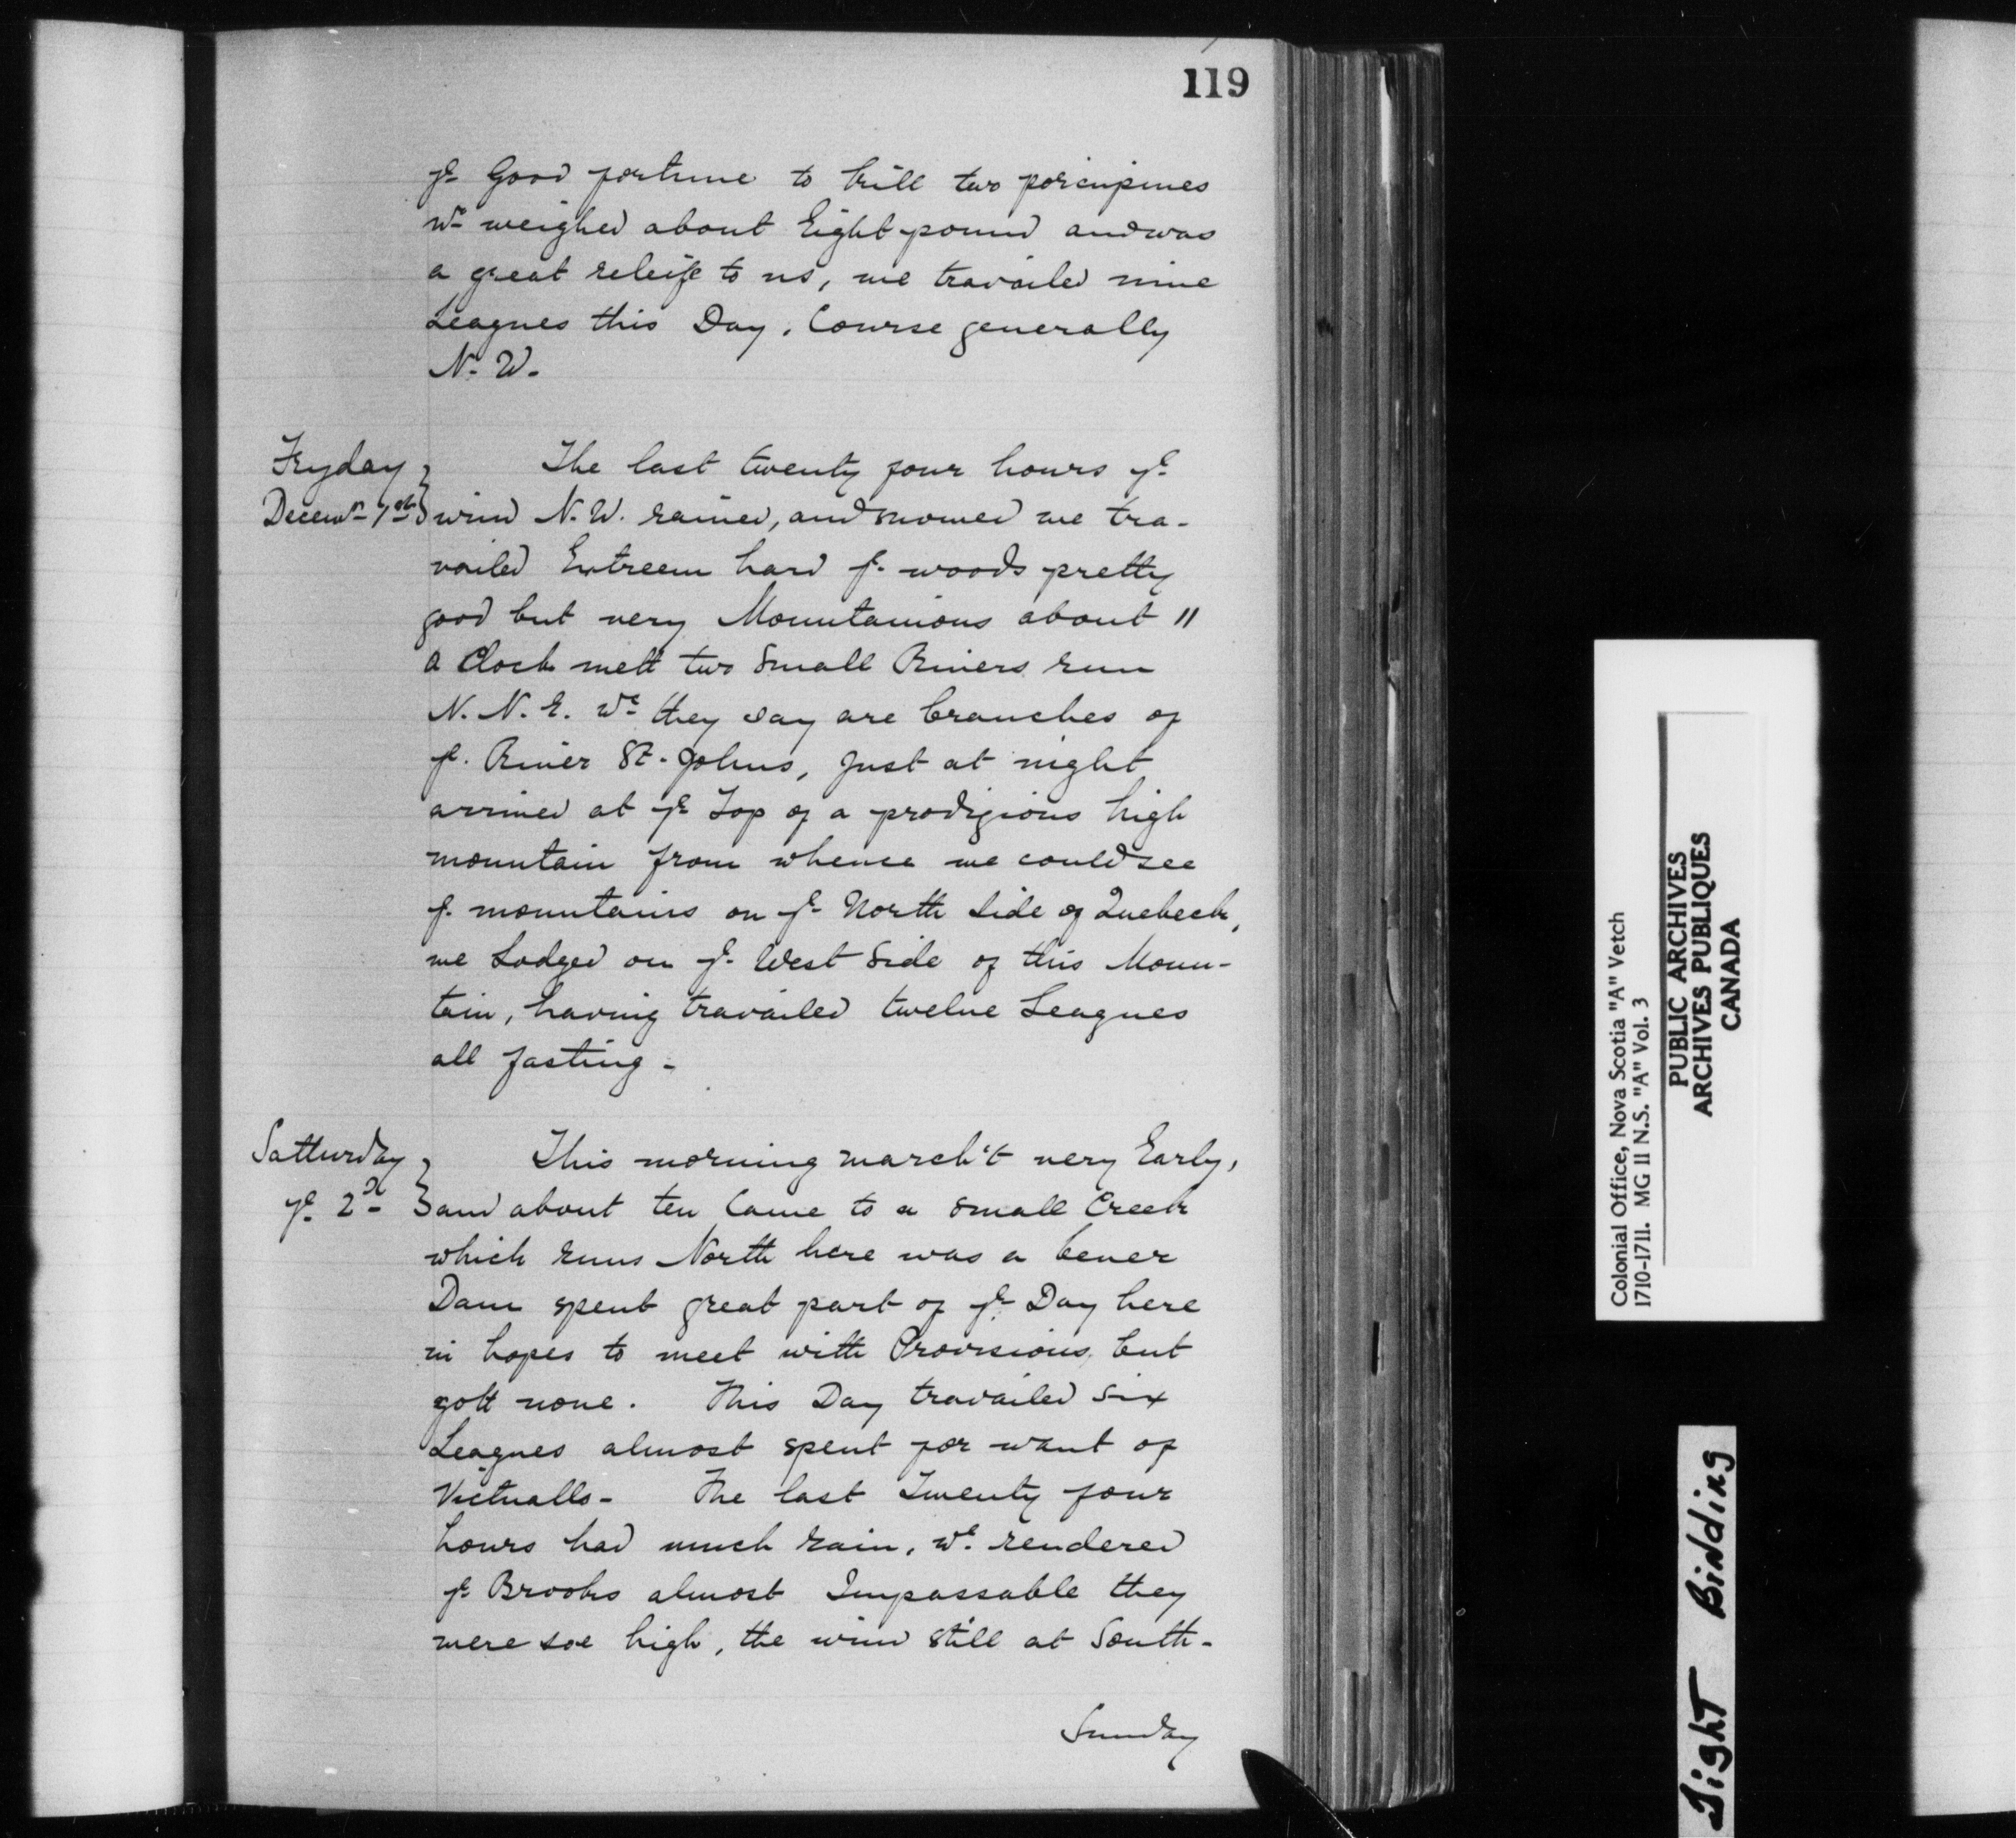 119
ye Good fortune to kill two porcupines
wc weighed about Eight pound and was
a great releife to us, we travailed nine
Leagues this Day, Course generally
N. W.
Fryday
Decemr 1st
The last twenty four hours ye
wind N. W. rained, and snowed we tra-
vailed Extreem hard ye woods pretty
good but very Mountanious about 11
a Clock mett two Small Rivers run
N. N. E. wc they say are branches of
ye River St. Johns, Just at night
arrived at ye Top of a prodigious high
mountain from whence we could see
ye mountains on ye North Side of Quebeck,
we Lodged on ye West Side of this Moun-
tain, having travailed twelve Leagues
all fasting -
Satturday
ye 2d
This morning march't very Early,
and about ten Came to a Small Creek
which runs North here was a bever
Dam spent great part of ye Day here
in hopes to meet with Provisions but
gott none. This Day travailed Six
Leagues almost spent for want of
Victualls - The last Twenty four
hours had much rain, wc rendered
ye Brooks almost Impassable they
were soe high, the wind still at South -
Sunday
Colonial Office, Nova Scotia "A" Vetch
1710-1711. MG 11 N.S. "A" Vol. 3
PUBLIC ARCHIVES
ARCHIVES PUBLIQUES
CANADA
Tight Binding